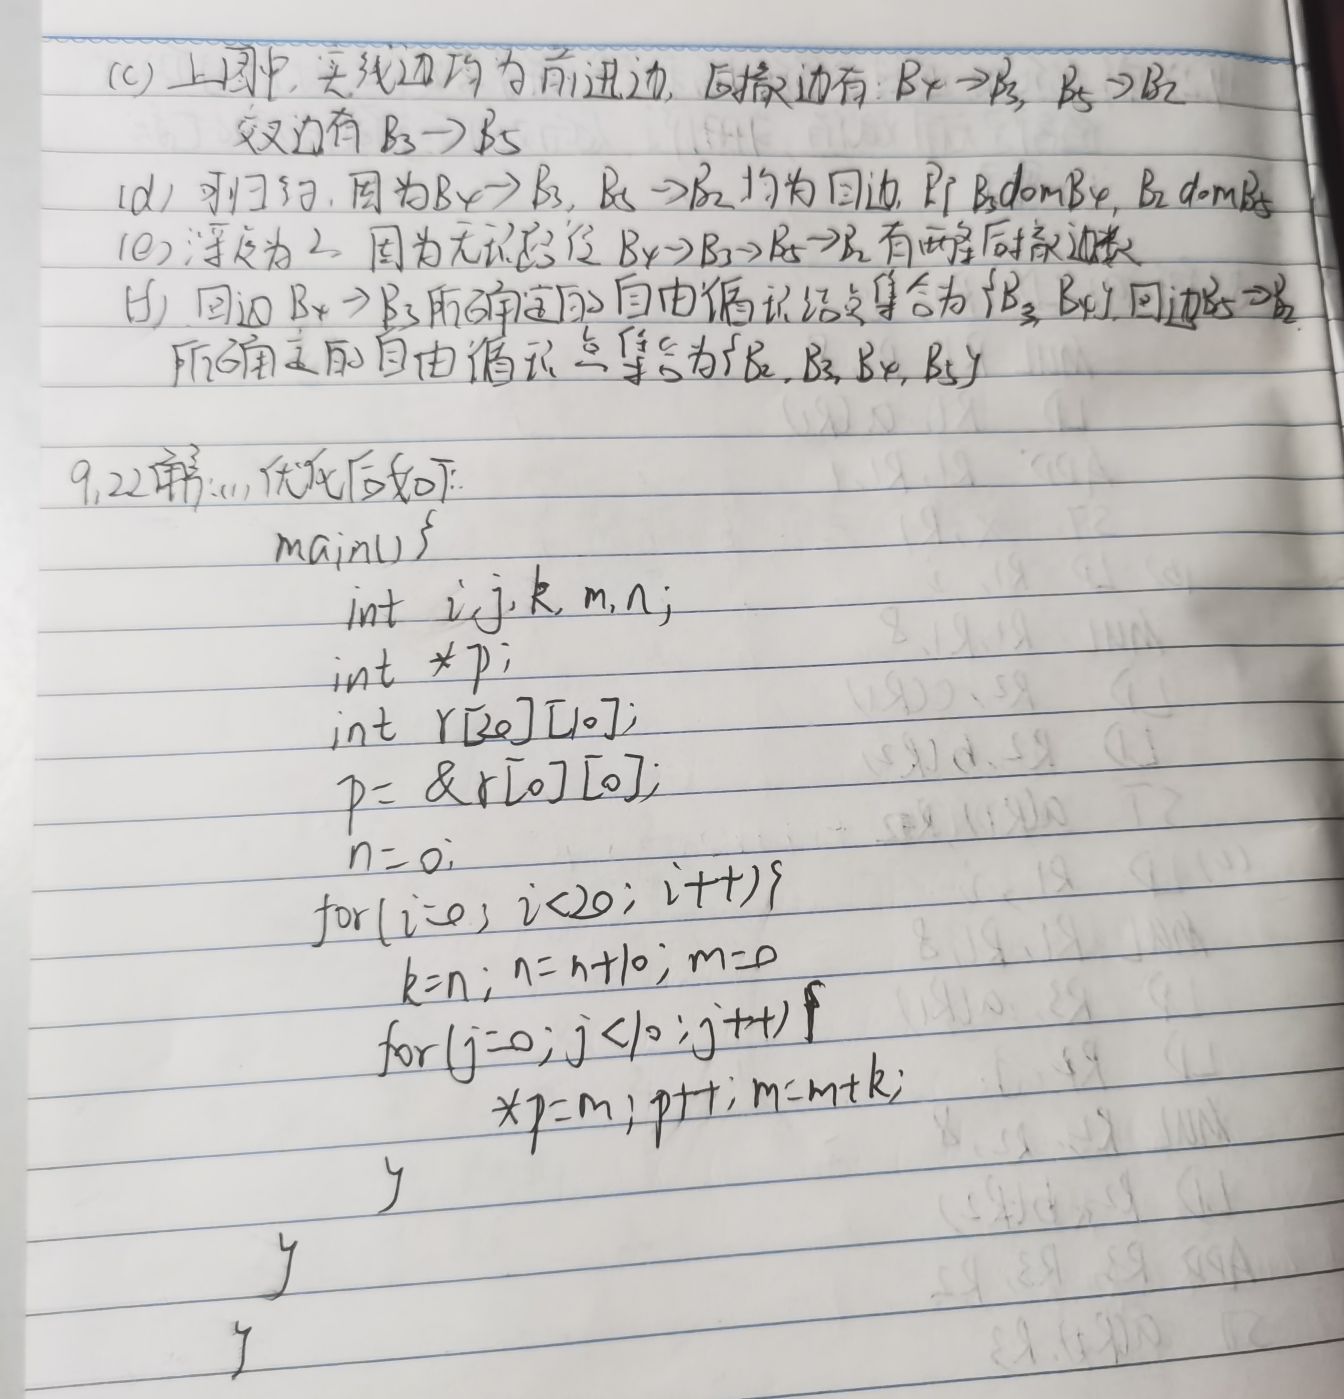 (c) 上图中,实线边均为前进边,后撤边有: B4→B3, B5→B2
交叉边有 B3→B5
(d) 可归约,因为B4→B3, B5→B2均为回边,即 B3domB4, B2 domB5
(e) 深度为2 因为无环路径 B4→B3→B5→B2有两条后撤边
(f) 回边 B4→B3所确定的自由循环结点集合为{B3, B4} 回边B5→B2
所确定的自由循环 点集合为{B2, B3, B4, B5}
9.22解:(1) 优化后如下:
main(){
int i,j,k,m,n;
int *p;
int r[20][10];
p= &r[0][0];
n=0;
for(i=0; i<20; i++){
k=n; n=n+10; m=0
for(j=0; j<10; j++){
*p=m; p++; m=m+k;
}
}
}